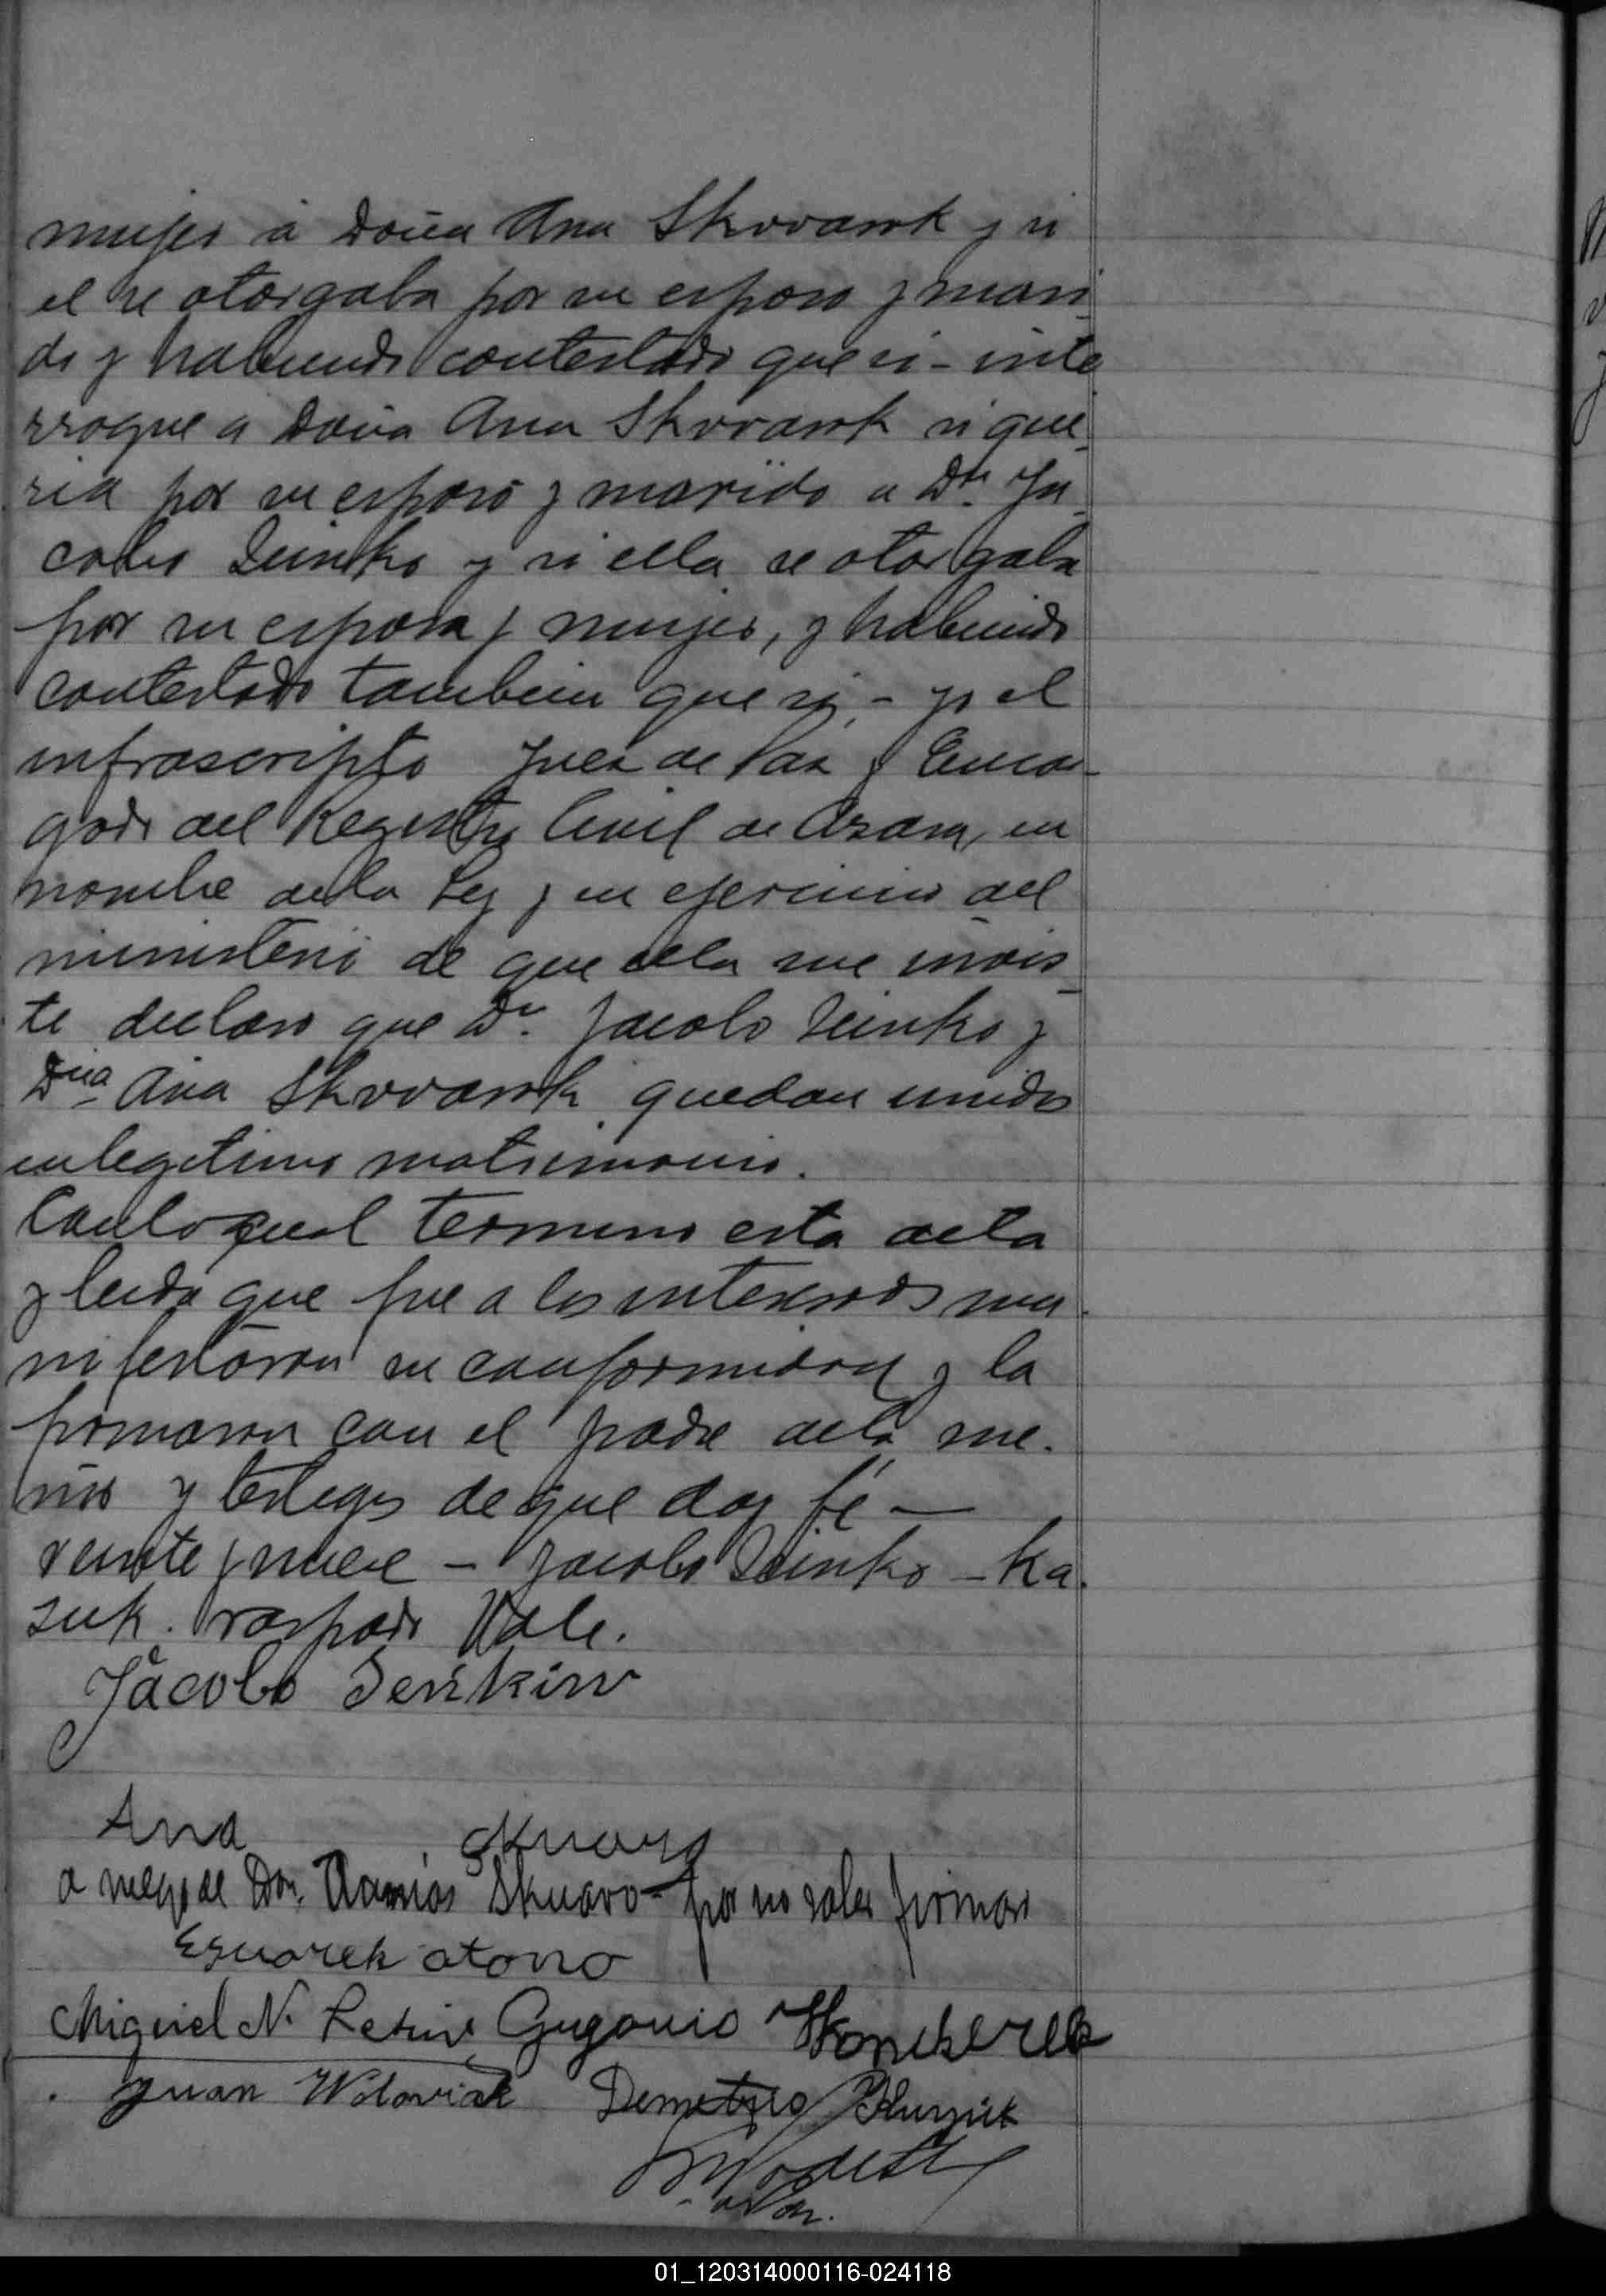 mujer á Doña Ana Skvvarok y si
el se otorgaba por su esposo y mari
do y habiendo contestado que si - inte
rrogue a Doña Ana Skvvarok si que
ria por su esposo y marido a Dn. Ja
cobo Seinko y si ella se otorgaba
por su esposa y mujer, y habiendo
contestado tambien que si, - yo el
infrascripto Juez de Paz y Encar
gado del Registro Civil de Azara, en
nombre de la Ley y en ejercicio del
ministerio de que ella me invis
te declaro que Dn. Jacobo Seinko y
Dña Ana Skvvarok quedan unidos
en legitimo matrimonio.
Con lo qual termino esta acta
y leida que fue a los interesados ma
nifestaron su conformidad y la
firmaron con el padre de la me.
nor y testigos de que doy fé —
veinte y nueve - Jacobo Seinko - Ka.
zuk. raspado Vale.
Jacobo
Ana
a ruego de Don Skuaro - por no saber firmar
Miguel N. Gregorio
Juan Woloviak Demetrio